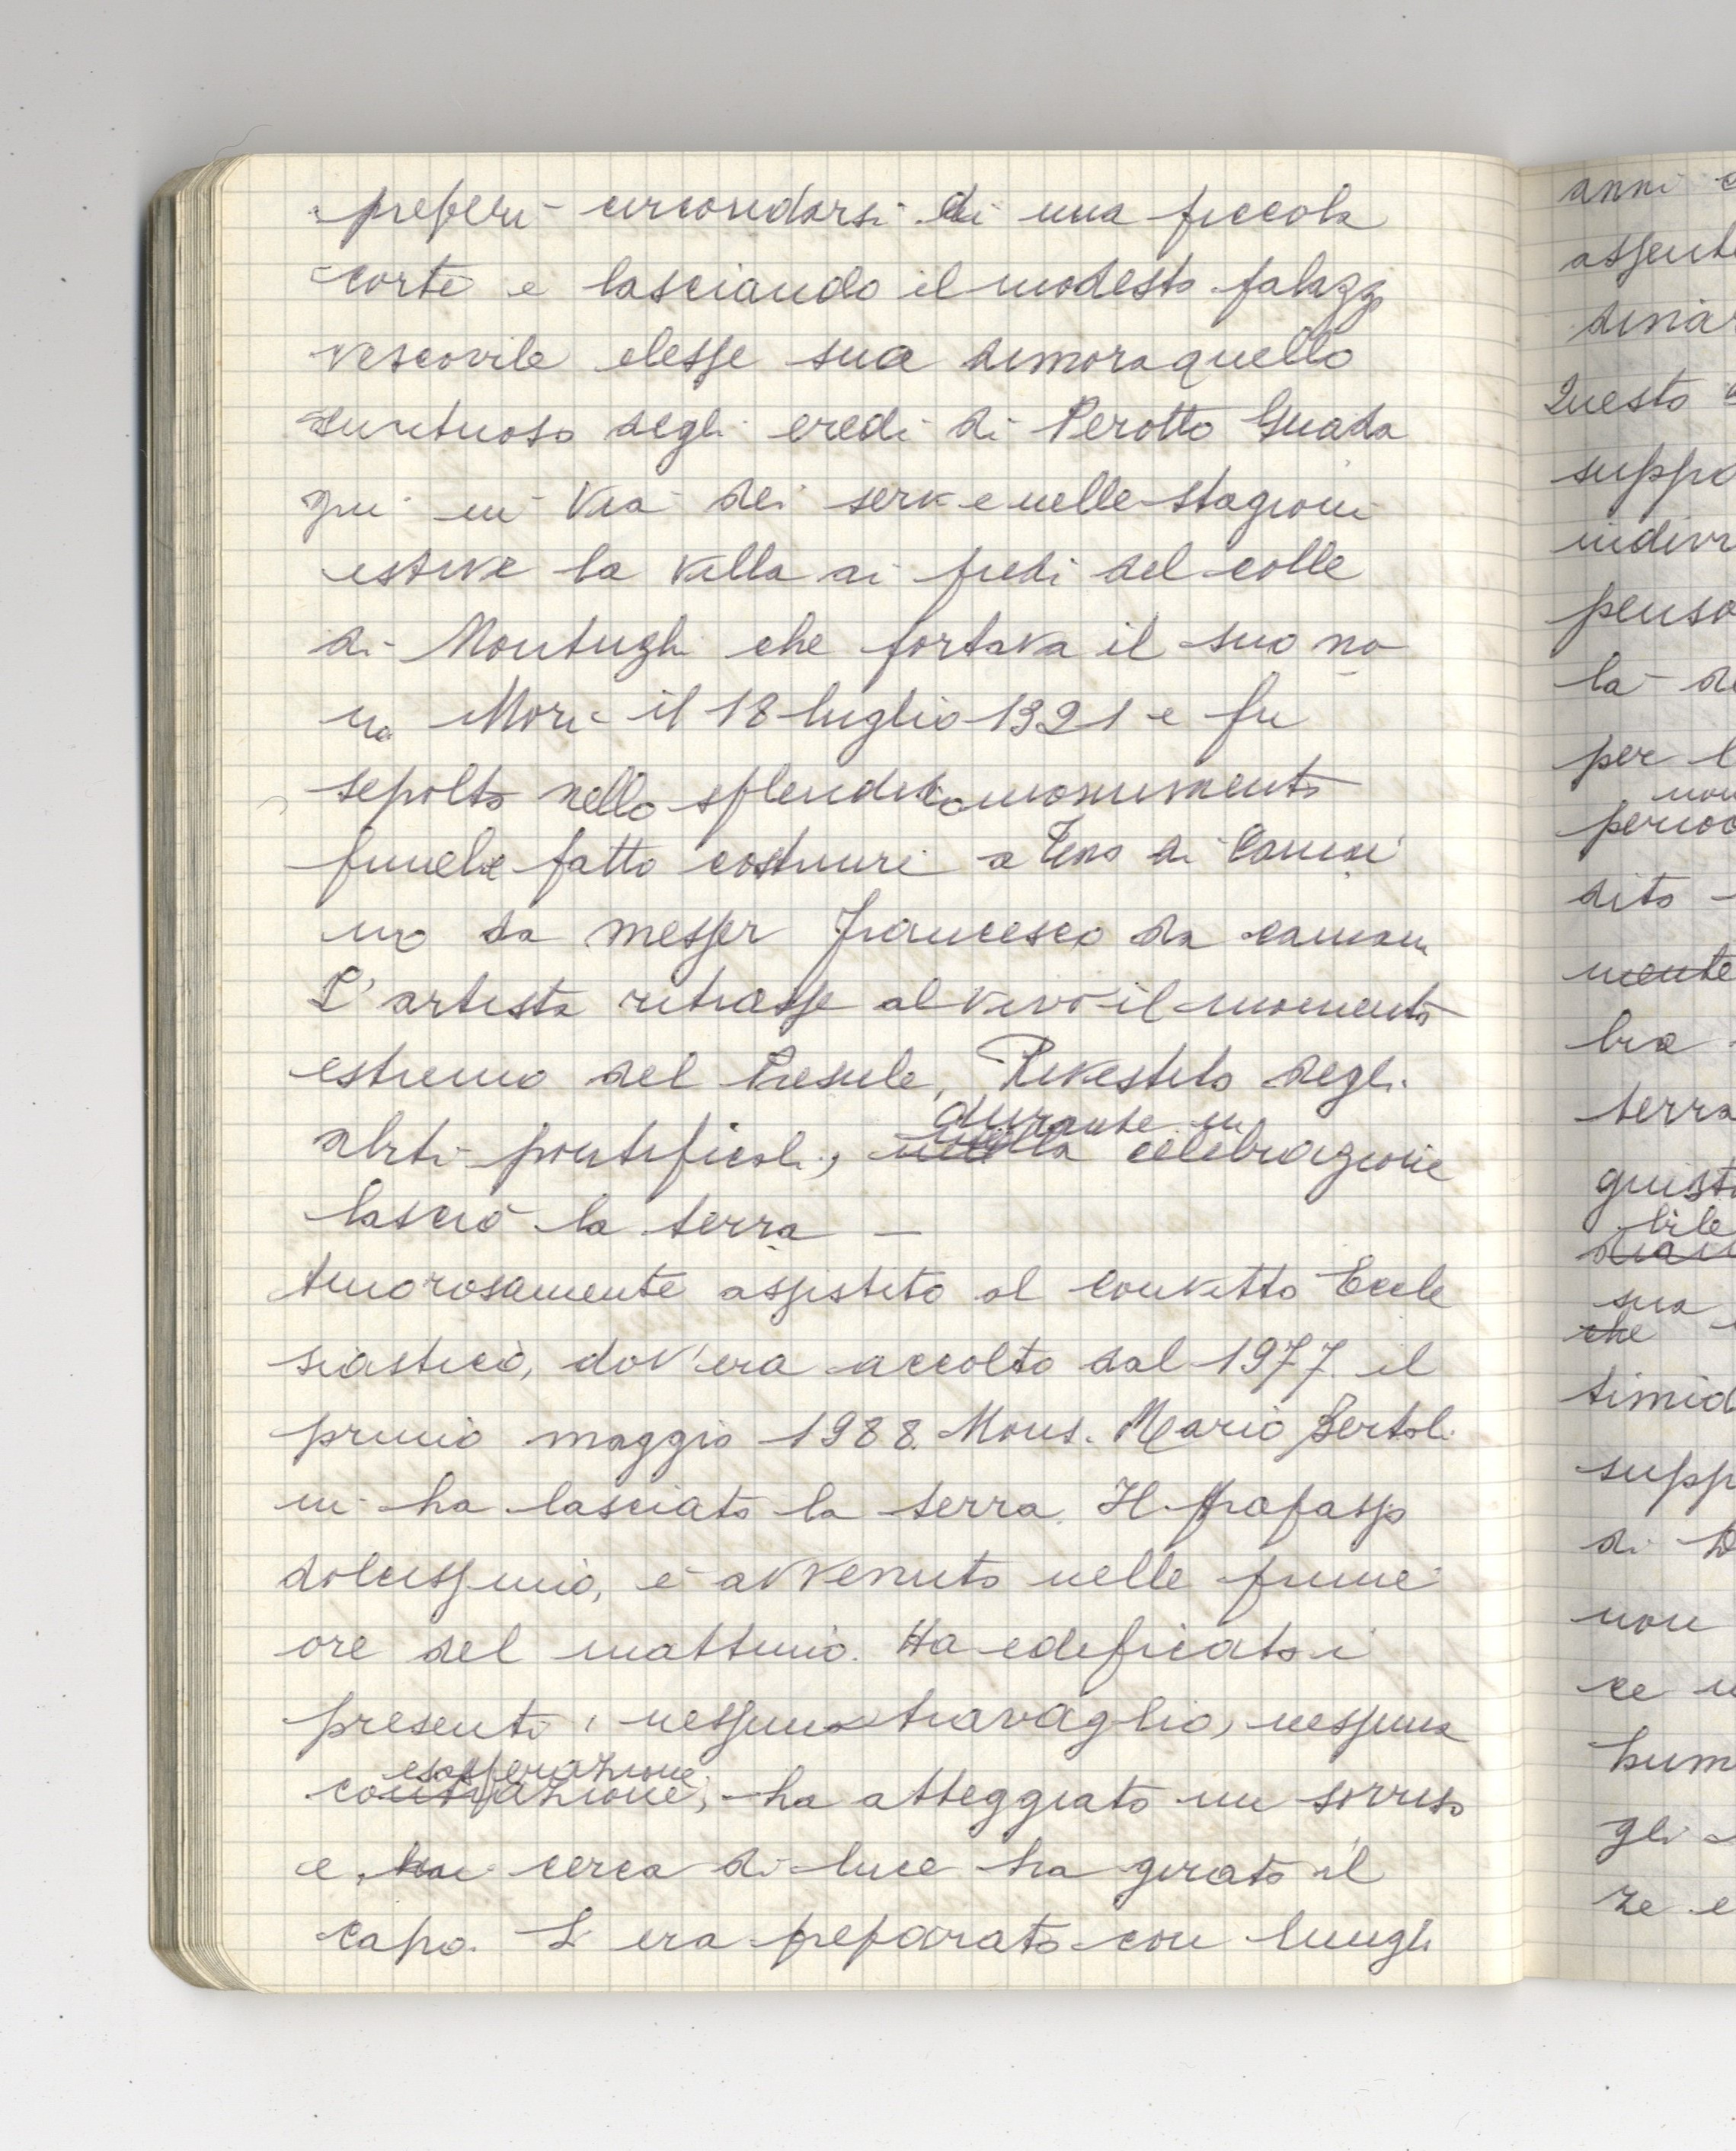 preferì circondarsi di una piccola
corte e lasciando il modesto palazzo
vescovile elesse sua dimora quello
suntuoso degli eredi di Perotto Guada
gni in Via dei servi e nelle stagioni
estive la villa ai piedi del colle
di Montughi che portava il suo no
me Morì il 18 luglio 1321 e fu
sepolto nello splendido monumento
funebre fatto costruire a Tino di Camai
no da messer Francesco da
L'artista ritrasse al vivo il momento
estremo del Presule, Rivestito degli
abiti pontificali, durante una
celebrazione
lasciò la terra —
Amorosamente assistito al Convitto Eccle
siastico, dov'era accolto dal 1977. il
primo maggio 1988. Mons. Mario Bertoli
ni ha lasciato la terra. Il trapasso
dolcissimo, è avvenuto nelle prime
ore del mattino. Ha edificato i
presenti, nessun travaglio, nessuna
esasperazione
contrazione, ha atteggiato un sorriso
e, cerca di luce ha girato il
capo. S'era preparato con lunghi
anni
Questo
suppo
indivi
penso
la
per
non
dito —
mente
terra
bile
sua
che
timid
supp
di
non
gli